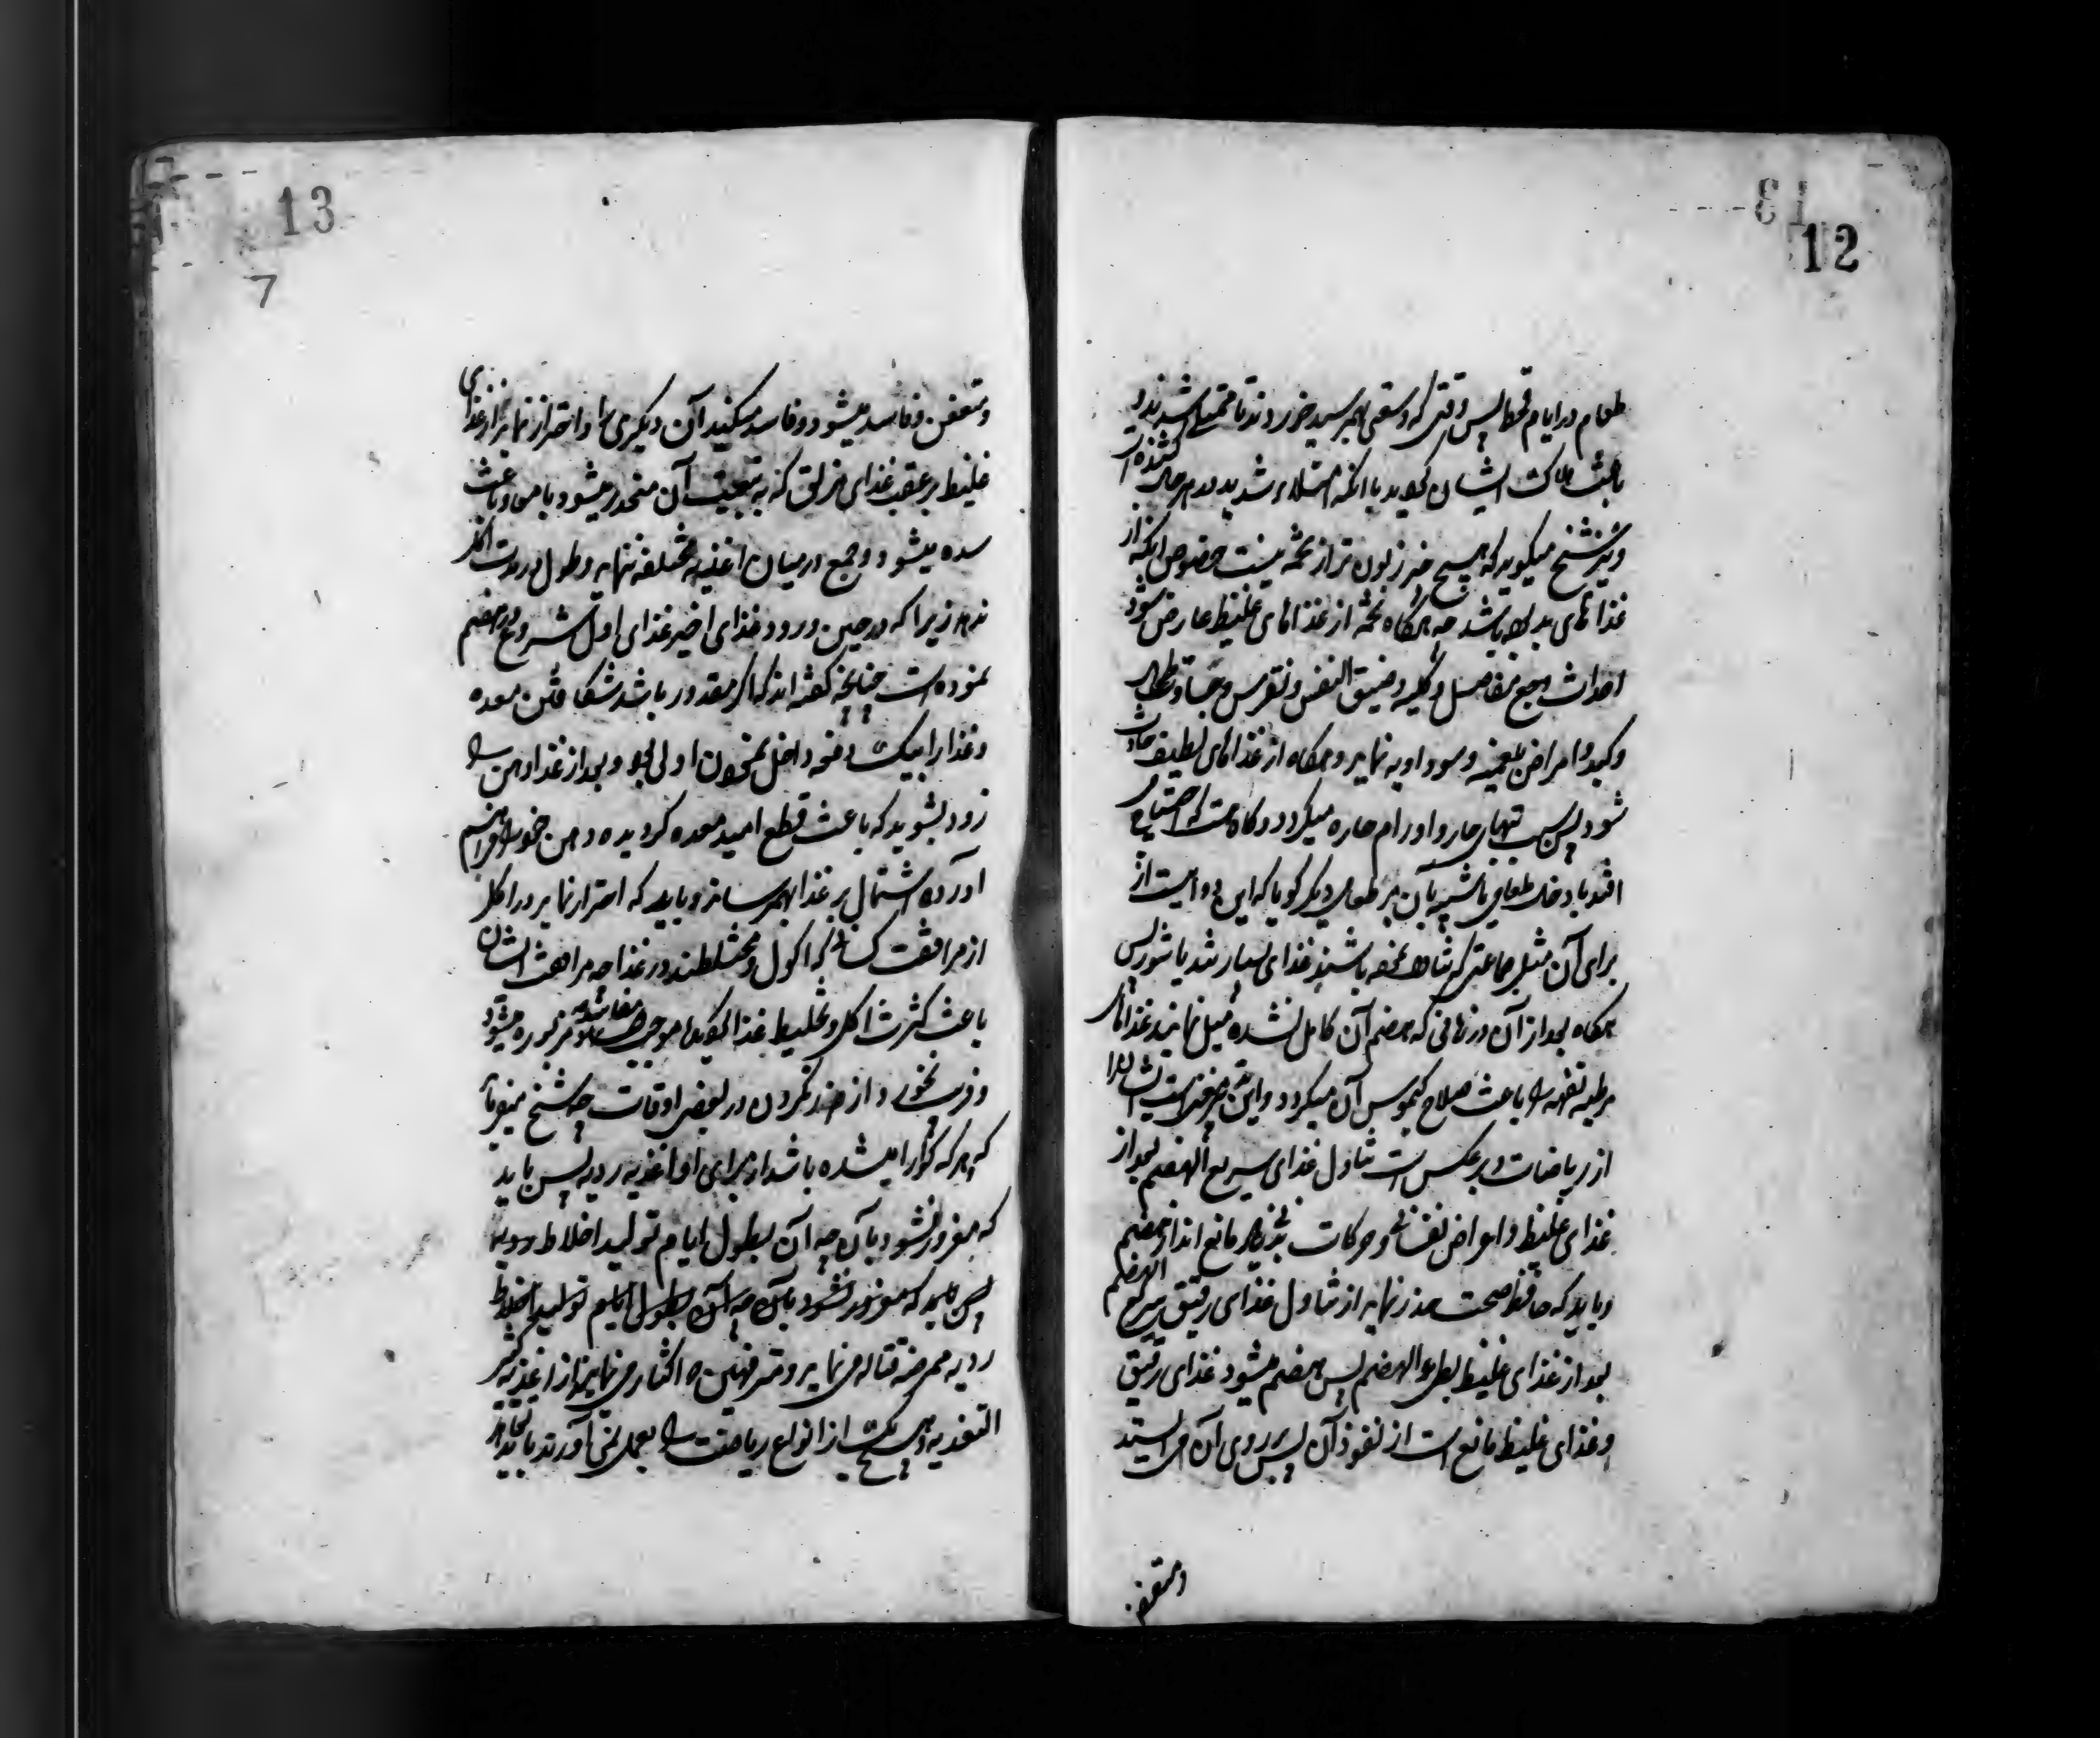 12
طعام در ایام قحط پس وقتی که وسعتی بهم رسید خوردند تا ممتلی شدند و
باعث هلاک ایشان گردید با آنکه امتلاء شدید در هر حال کشنده است
و نیز شیخ میگوید که هیچ چیز زبون تر از تخمه نیست خصوص آنکه از
غذاهای بد باشد چه هرگاه تخمه از غذاهای غلیظ عارض شود
احداث وجع مفاصل و کلیه و ضیق النفس و نقرس و جساوة طحال
و کبد و امراض بلغمیه و سوداویه نماید و هرگاه از غذاهای لطیف حادث
شود پس سبب تبهای حار و اورام حاره میگردد و گاه هست که احتیاج
افتد بادخال طعامی یا شبیه بآن بر طعامی دیگر گویا که این دوا است از
برای آن مثل جماعتی که تناول نموده باشند غذای بسیار تند یا شور پس
هرگاه بعد از آن در زمانی که هضم آن کامل نشده میل نمایند غذاهای
مرطبه تفهه را باعث صلاح کیموس آن میگردد و این
از ریاضات و بر عکس است تناول غذای سریع الهضم بعد از
غذای غلیظ و اعراض نفسانی و حرکات بدنی مانع اند از هضم
و باید که حافظ صحت حذر نماید از تناول غذای رقیق سریع الهضم
بعد از غذای غلیظ بطی الهضم پس هضم میشود غذای رقیق
و غذای غلیظ مانع است از نفوذ آن پس بر روی آن می ایستد
و متعفن
13
7
و متعفن و فاسد میشود و فاسد میکند آن دیگری را و احتراز نماید از غذای
غلیظ بر عقب غذای مزلق که به تبعیت آن منحدر میشود با معا و باعث
سده میشود و جمع در میان اغذیه مختلفه ننماید و طول در مدت اکل
ندهد زیرا که در حین ورود غذای اخیر غذای اول شروع در هضم
نموده است چنانچه گفته اند که اگر مقدور باشد شکافتن معده
و غذا را بیک دفعه داخل نمودن اولی بود و بعد از غذا دهن را
زود بشوید که باعث قطع امید معده گردیده دهن خود را فراهم
آورده اشتمال بر غذا بهم رساند و باید که احتراز نماید در اکل
از مرافقت کسانی که اکول و مختلطند در غذا چه مرافقت ایشان
باعث کثرت اکل و تخلیط غذا گردیده موجب مفاسد مزبوره میشود
و فریب نخورد از ضرر نکردن در بعضی اوقات چه شیخ میفرماید
که هر که گوارا میشده باشد از برای او اغذیه ردیه پس باید
که مغرور نشود بآن چه آن بطول ایام تولید اخلاط ردیه
پس باید که مغرور نشود بآن چه آن بطول ایام تولید اخلاط
ردیه ممرضه قتاله می نماید و مترفهین که اکثار می نمایند از اغذیه کثیر
التغذیه و هیچ یک از انواع ریاضت را بعمل نمی آورند باید که